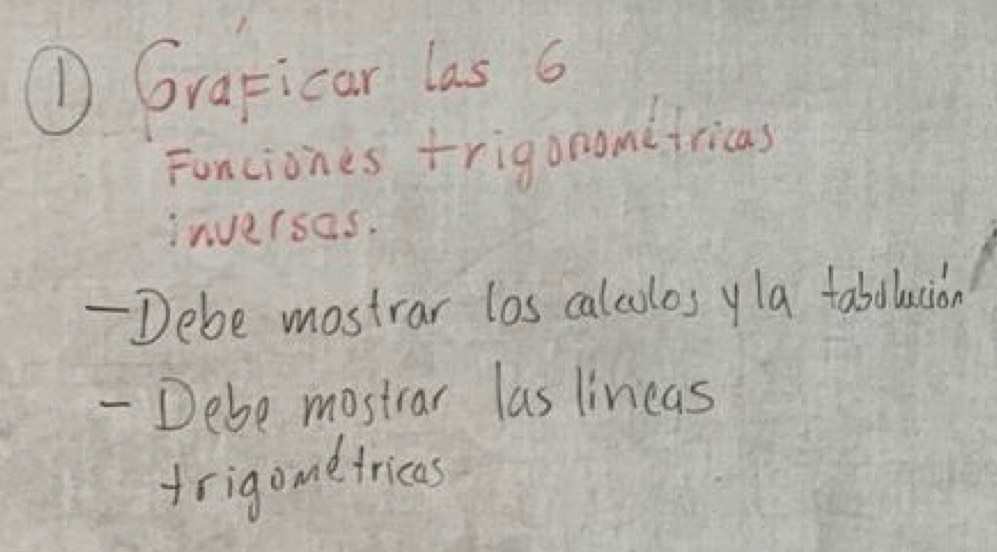 ① Graficar las 6
Funciones trigonométricas
inversas.
- Debe mostrar los calculos y la tabulución
- Debe mostrar las lineas
trigométricas